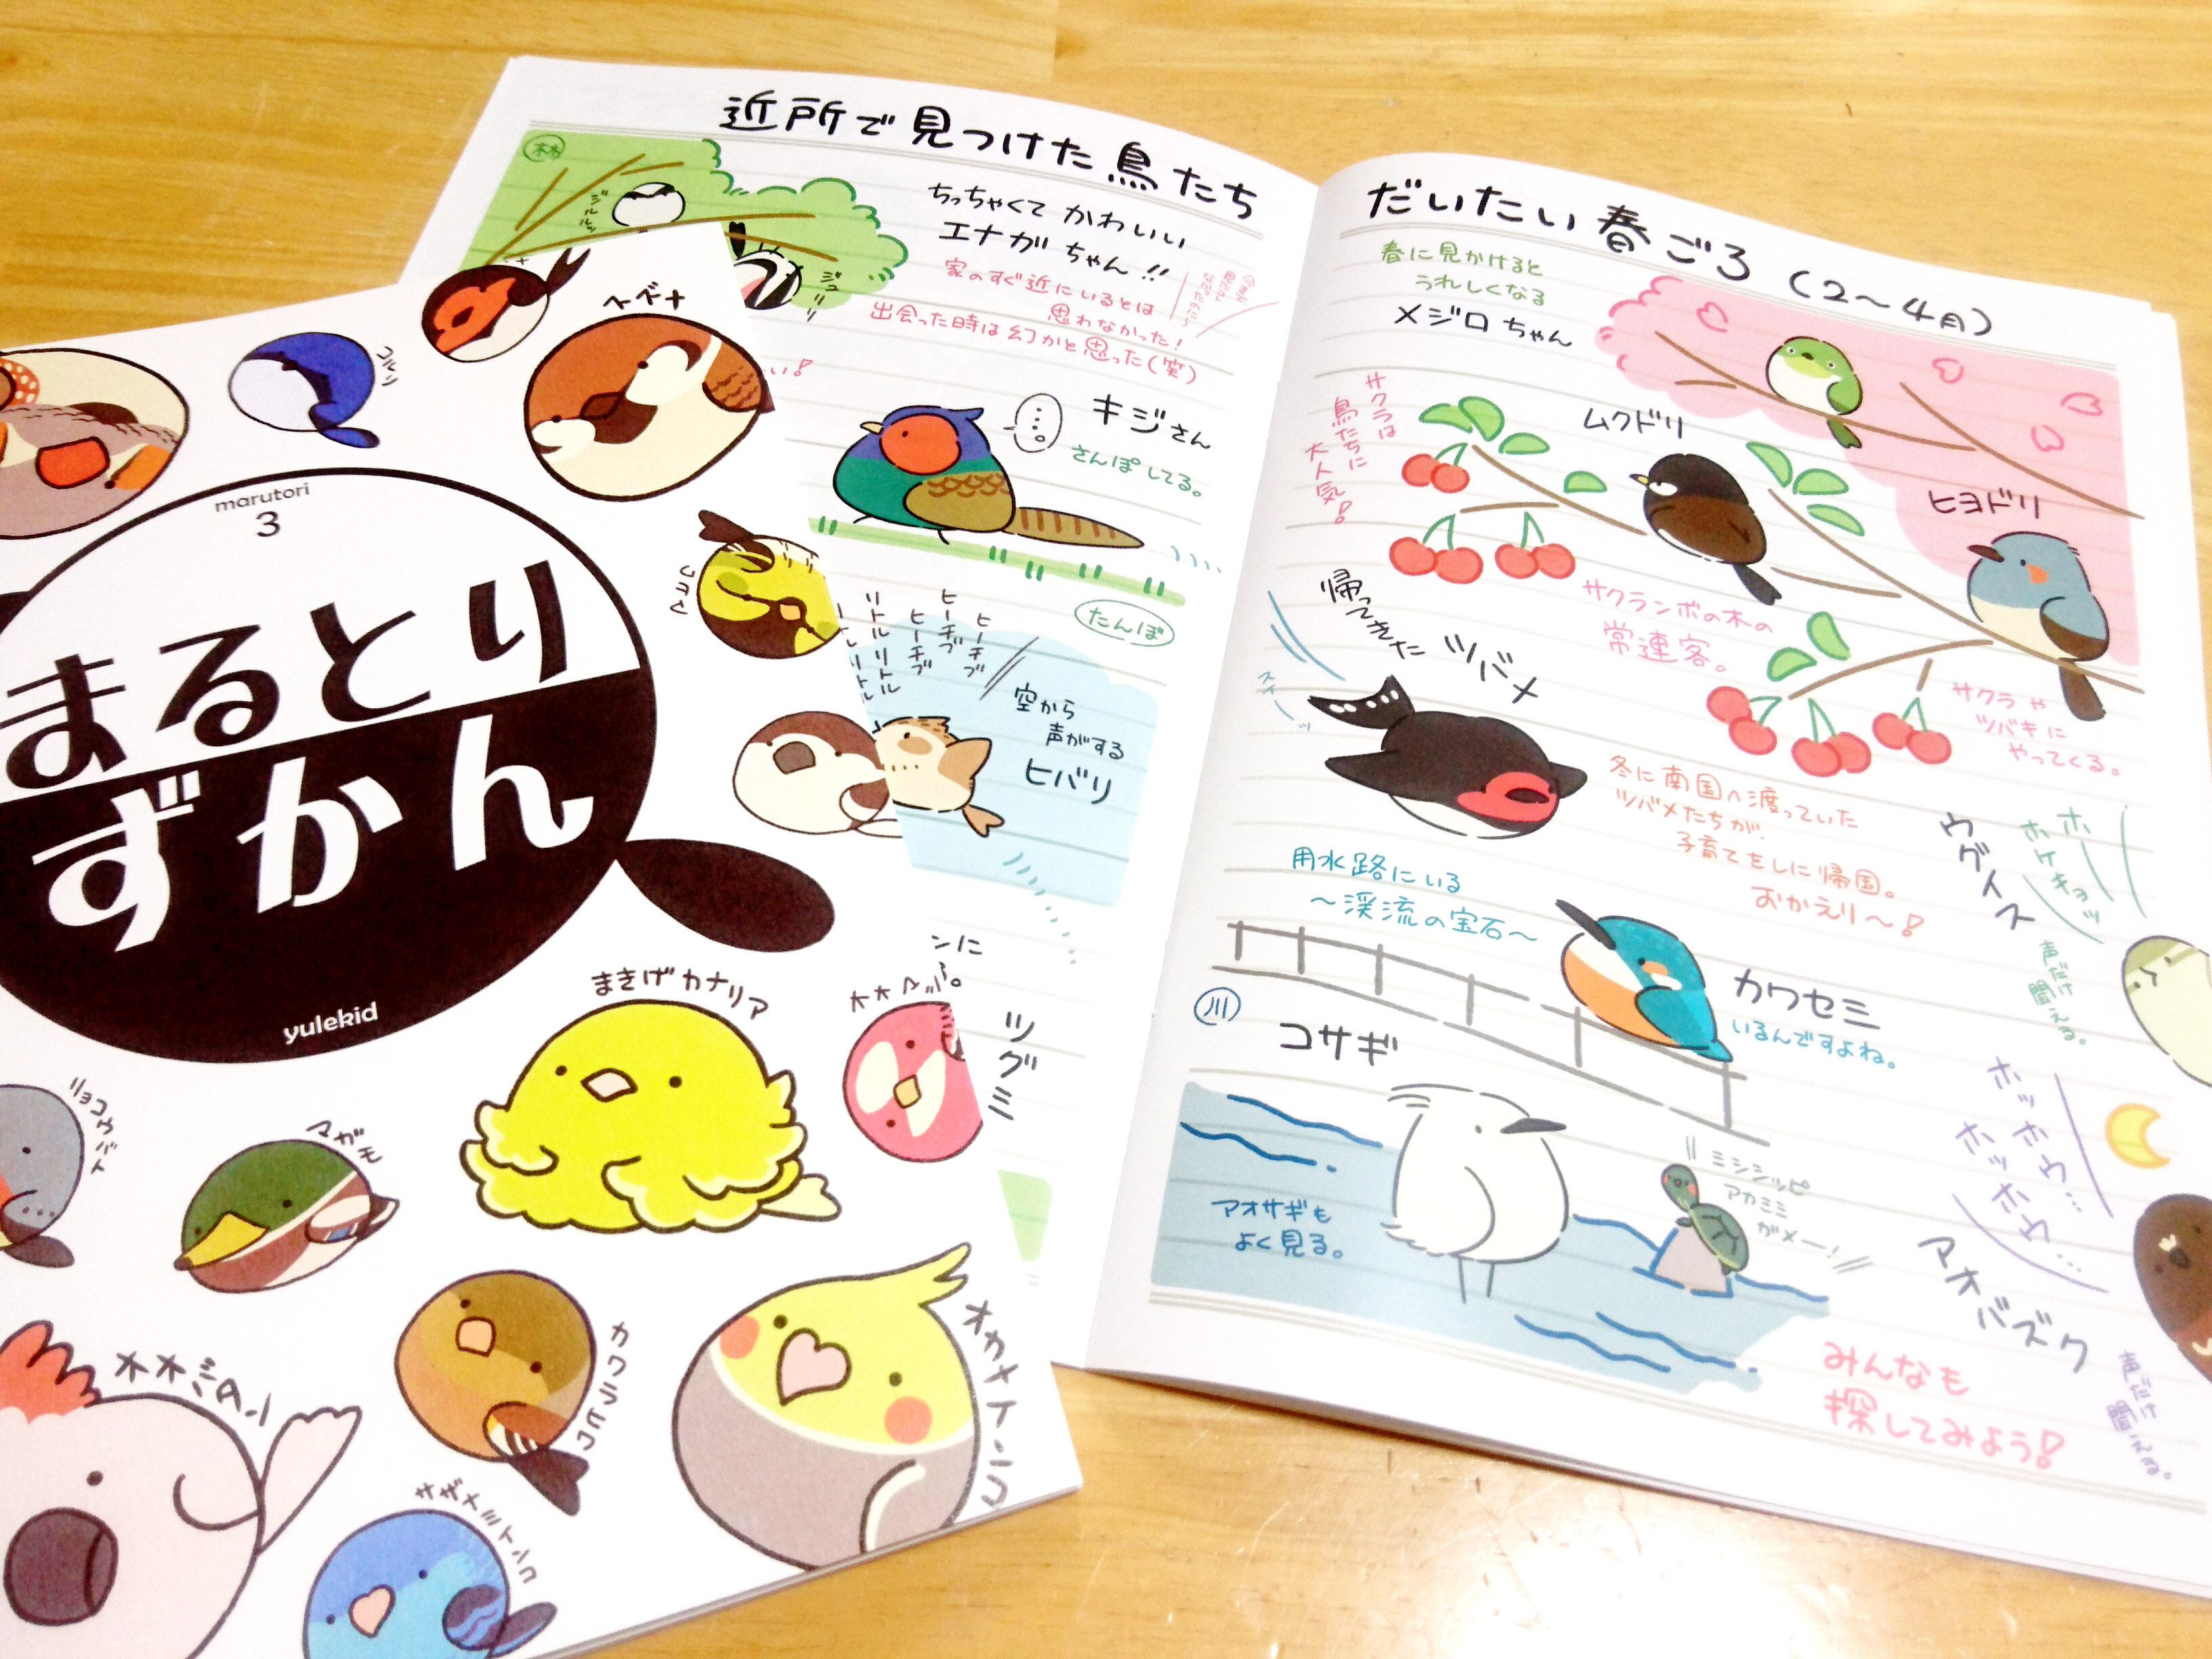 marutori
3
まるとり
ずかん
yulekid
コルリ
まきげカナリア
マガモ
カワラヒワ
オカメインコ
近所で見つけた鳥たち
林
ジュルルッ
ジュリリ
ちっちゃくてかわいい
エナガちゃん!!
家のすぐ近にいるとは
思わなかった!
出会った時は幻かと思った(笑)
い!
キジさん
さんぽしてる。
たんぼ
ヒーチブ
ヒーチブ
ヒーチブ
リトルリトル
空から
声がする
ヒバリ
ツグミ
だいたい春ごろ(2〜4月)
春に見かけると
うれしくなる
メジロちゃん
サクラは
鳥たちに
大人気!
ムクドリ
サクランボの木の
常連客。
ヒヨドリ
サクラや
ツバキに
やってくる。
帰ってきた
ツバメ
スイーッ
冬に南国へ渡っていた
ツバメたちが
子育てをしに帰国。
おかえり〜!
ウグイス
ホー
ホケキョッ
声だけ
聞える。
用水路にいる
〜渓流の宝石〜
カワセミ
いるんですよね。
川
コサギ
アオサギも
よく見る。
ミシシッピ
アカミミ
ガメー!
ホッホウ…
ホッホウ…
アオバズク
声だけ
聞える。
みんなも
探してみよう!